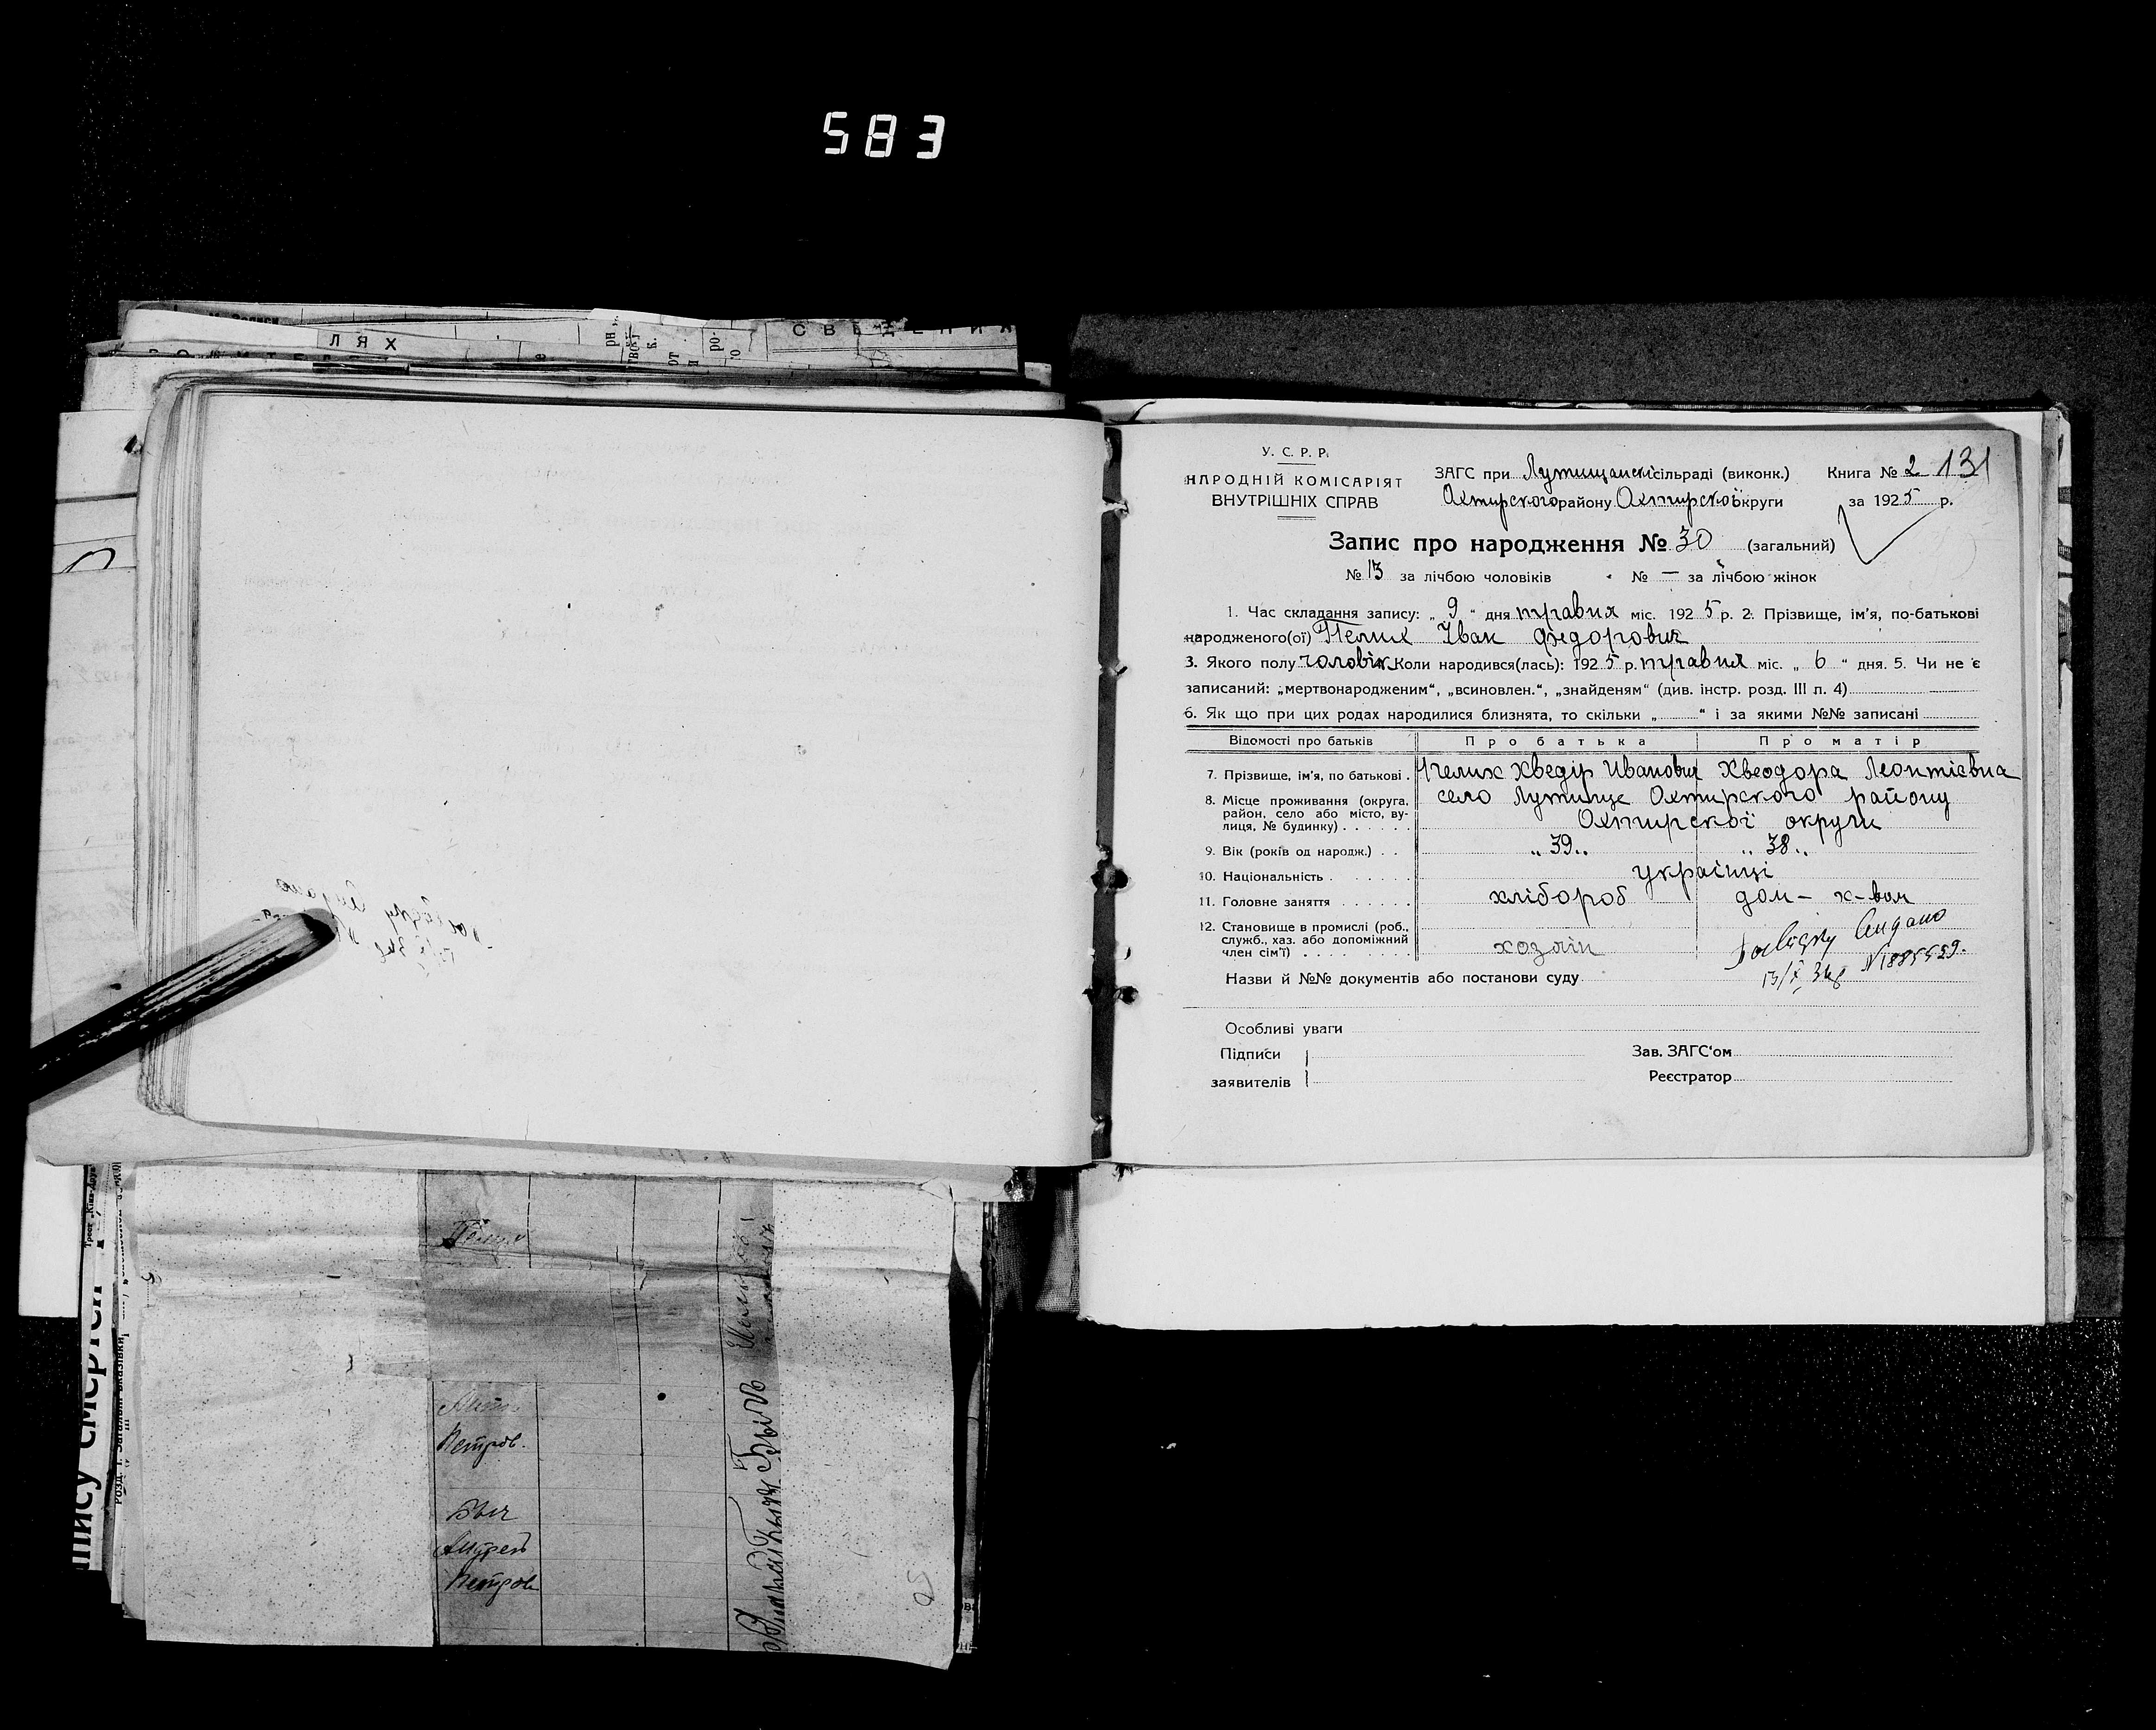 583
ЛЯХ
СВѢДЕНИЯ
У. С. Р. Р.
НАРОДНІЙ КОМІСАРІЯТ
ВНУТРІШНІХ СПРАВ
ЗАГС при Лутищанскі сільраді (виконк.)
Охтирского району Охтирської округи
Книга № 2 131
за 1925 р.
Запис про народження № 30 (загальний)
№ 13 за лічбою чоловіків № — за лічбою жінок
1. Час складання запису: „ 9 " дня травня міс. 1925 р. 2. Прізвище, ім'я, по-батькові
народженого(ої) Пелих Іван Федорович
3. Якого полу чоловік Коли народився(лась): 1925 р. травня міс. „ 6 " дня. 5. Чи не є
записаний: „мертвонародженим", „всиновлен.", „знайденям" (див. інстр. розд. III п. 4)
6. Як що при цих родах народилися близнята, то скільки „ " і за якими №№ записані
Відомості про батьків Про батька Про матір
7. Прізвище, ім'я, по батькові . Пелих Хведір Иванович Хвеодора Леонтієвна
8. Місце проживання (округа, район, село або місто, вулиця, № будинку) . . . . . .
село Лутище Охтирского району
Охтирскої округи
9. Вік (років од народж.) . . „ 39 „ „ 38 „
10. Національність . . . . . . . українці
11. Головне заняття . . . . . . хлібороб дом – х-вом
12. Становище в промислі (роб.,
служб., хаз. або допоміжний
член сім'ї) . . . . . . . . хозяін
Назви й №№ документів або постанови суду
Особливі уваги
Підписи
заявителів
Зав. ЗАГС'ом
Реєстратор
Петров.
Быч
Андрей
Петров